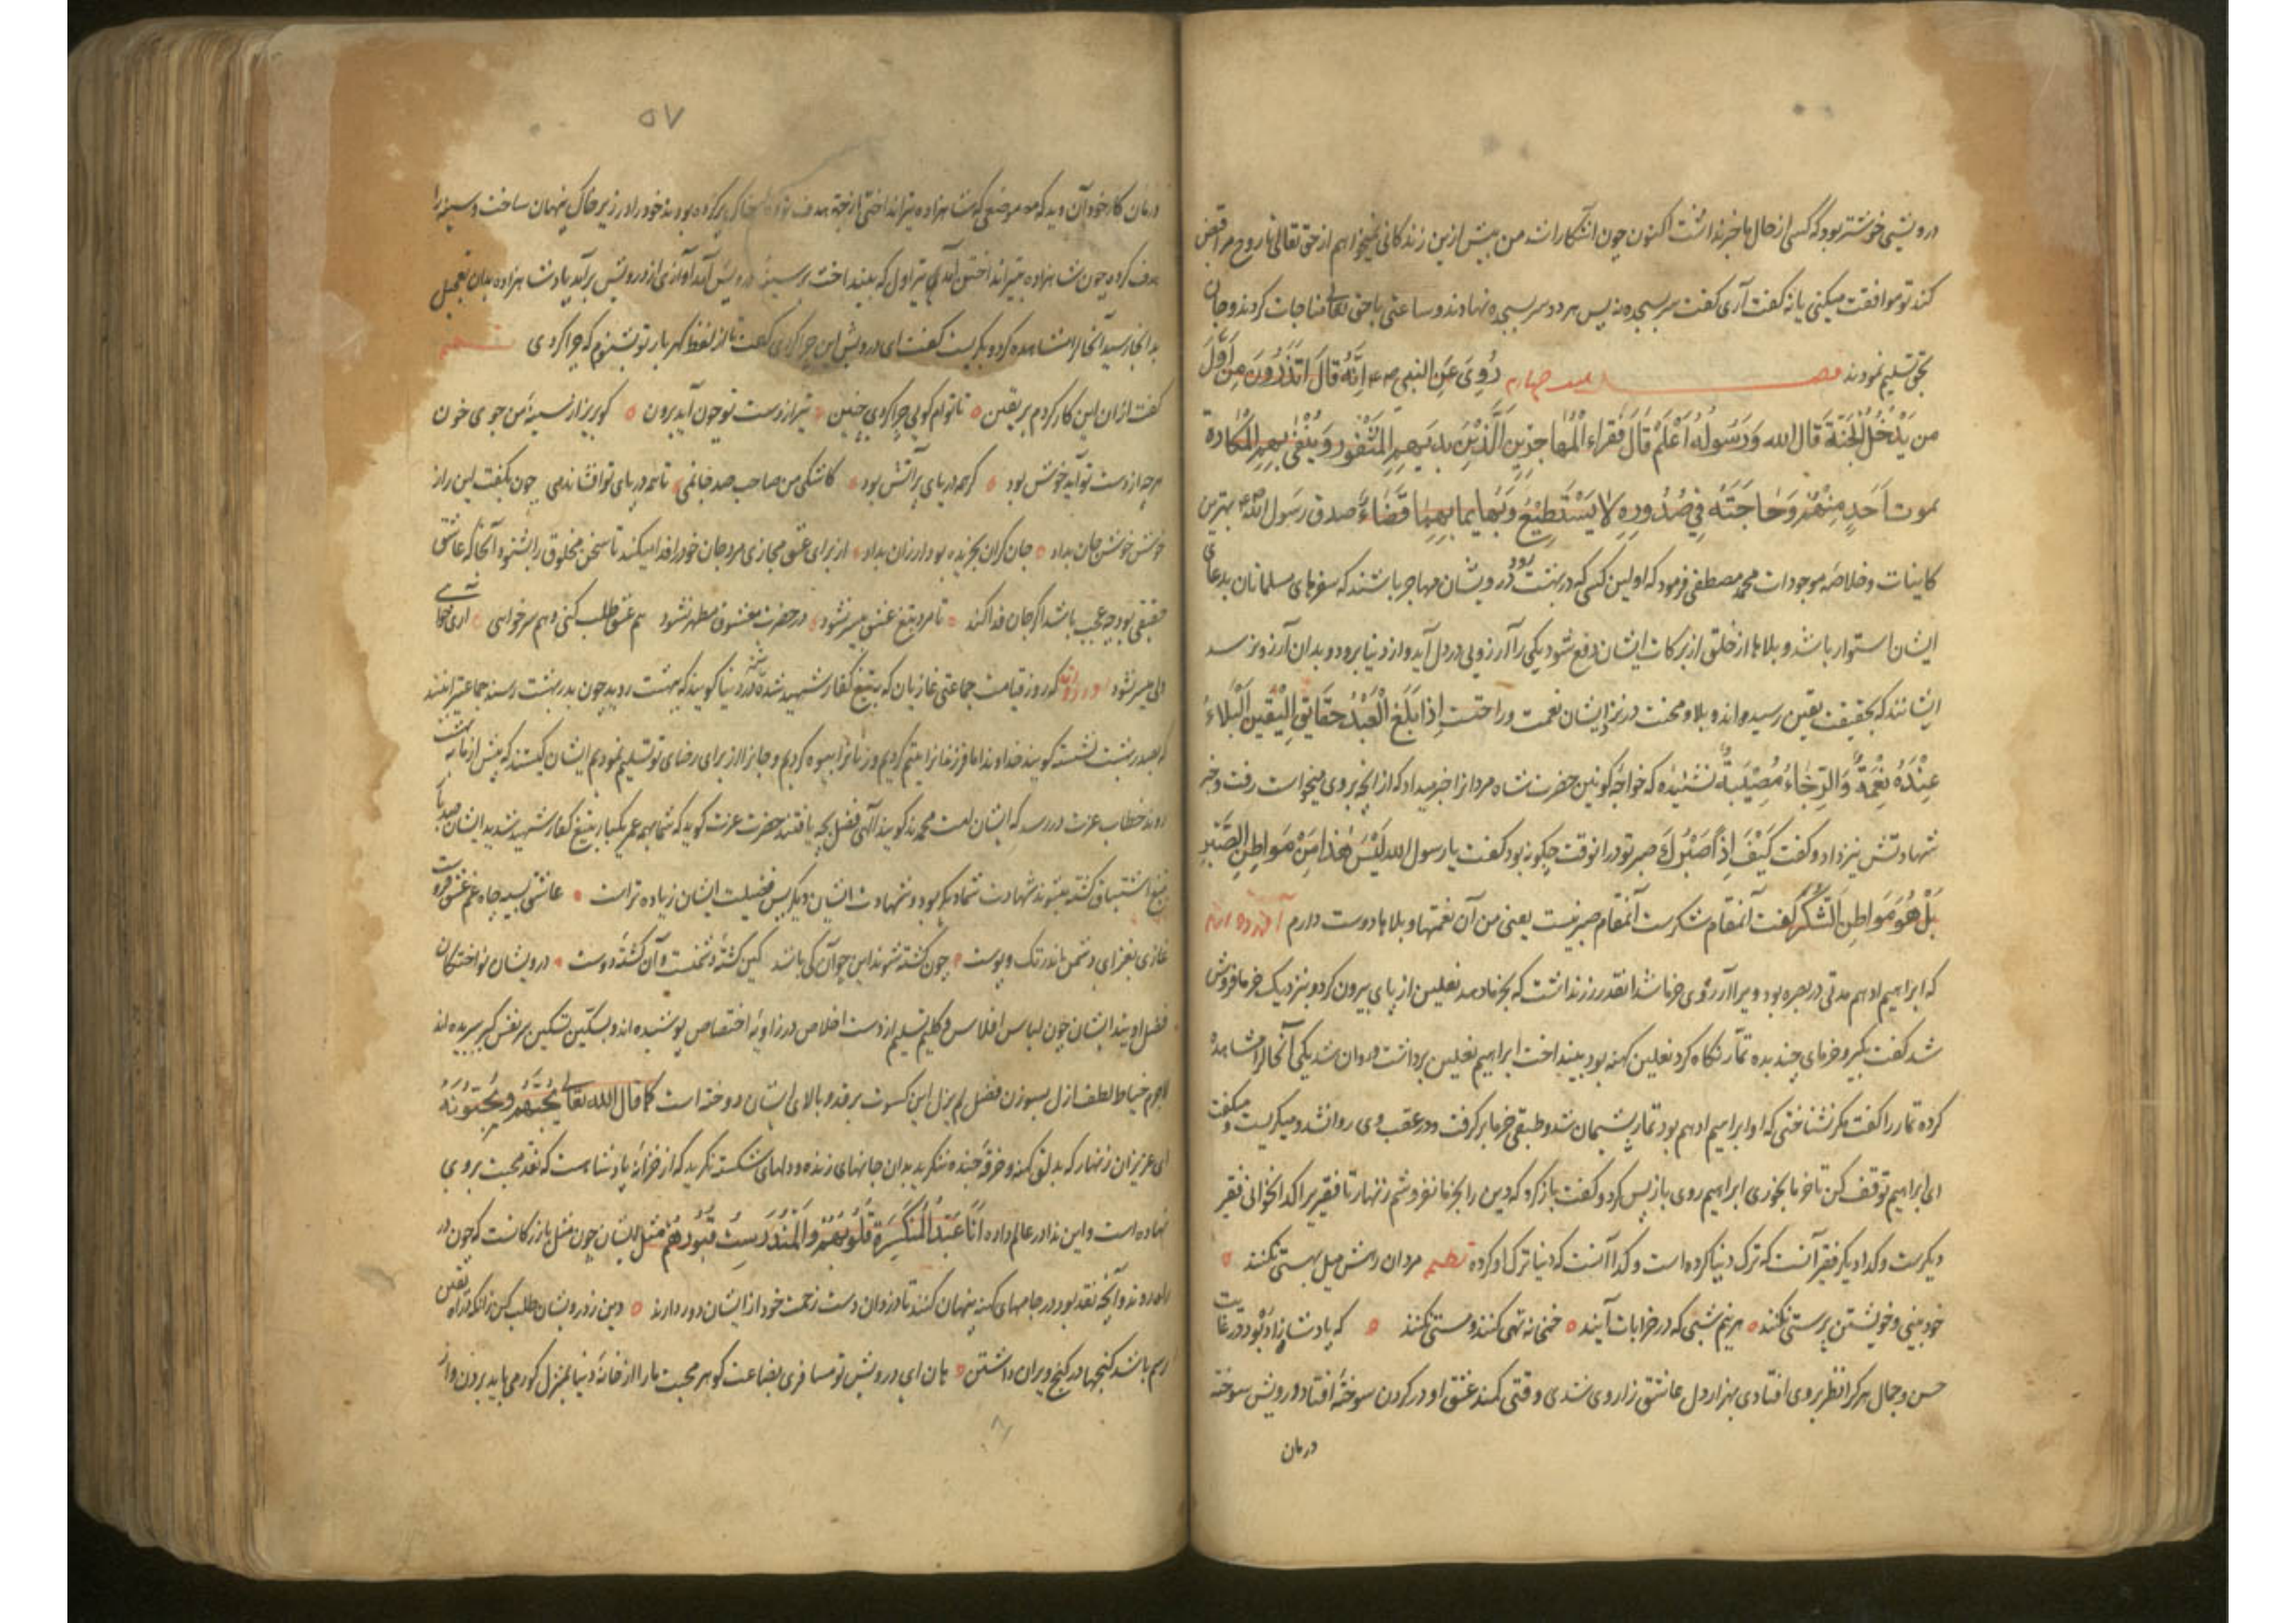 درویشی خوشتر بود که کسی از حال ما خبر نداشت اکنون چون آشکارا شد من بیش ازین زندگانی نمیخواهم از حق تعالی تا روح مرا قبض
کند تو موافقت میکنی یا نه گفت آری گفت سر بسجده نه پس هر دو سر بسجده نهادند و ساعتی با حق تعالی مناجات کردند و جان
بحق تسلیم نمودند فصل چهارم رُوِیَ عَنِ النبی صم اِنَّهُ قَالَ اَتَدْرُونَ مَنْ اَوَّلُ
من یَدْخُلُ الجَنَّةَ قَالَ الله وَرَسُولُهُ اَعْلَمُ قَالَ فُقَراء الْمُهاجِرِینَ الَّذِیْنَ
یموت اَحَدٍ مِنْهُمْ وَحَاجَتُهُ فِی صُدُورِهِ لَا یَسْتَطِیْعُ لَهَا قَضَاءً صدق رسول الله بهترین
کاینات و خلاصه موجودات محمد مصطفی فرمود که اولین کسی که در بهشت رود درویشان مهاجر باشند که سفرهای مسلمانان بدعای
ایشان استوار باشد و بلاها از خلق از برکات ایشان دفع شود یکی را آرزویی در دل آید و از دنیا برود و بدان آرزو نرسد
ایشانند که بحقیقت یقین رسیده‌اند و بلا و محنت در نزد ایشان نعمت و راحتست اِذا بَلَغَ الْعَبْدُ حَقَایِقِ الْیَقِین اَلْبَلاءُ
عِنْدَهُ نِعْمَةٌ وَالرَّخَاءُ مُصِیْبَةٌ نشنیده که خواجه کونین حضرت شاه مردانرا خبر میداد که از آنچه بروی میخواست رفت و خبر
شهادتش نیز داد و گفت کَیْفَ اِذاً صَبْرُكَ صبر تو در انوقت چگونه بود گفت یا رسول الله لَیْسَ هٰذا مِنْ مَوَاطِنِ الصَّبْرِ
بَلْ هُوَ مَوَاطِنِ الشُّكْرِ گفت آنمقام شکرست آنمقام صبر نیست یعنی من آن نعمتها و بلاها دوست دارم آورده اند
که ابراهیم ادهم مدتی در بصره بود ویرا آرزوی خرما شد انقدر زر نداشت که بخرما دهد نعلین از پای بیرون کرد و بنزدیک خرما فروش
شد گفت بگیر و خرمای چند بده تمار نگاه کرد نعلین کهنه بود بینداخت ابراهیم نعلین برداشت و روان شد یکی آنحال را مشاهده
کرده تمار را گفت مگر نشناختی که او ابراهیم ادهم بود تمار پشیمان شد و طبقی خرما برگرفت و در عقب وی روانشد و میگریست و میگفت
ای ابراهیم توقف کن تا خرما بخوری ابراهیم روی باز پس کرد و گفت باز گرد که دین را بخرما نفروشم زنهار تا فقیر را گدا نخوانی فقیر
دیگرست و گدا دیگر فقیر آنست که ترک دنیا کرده است و گدا آنست که دنیا ترک او کرده نظم مردان رهش میل بهستی نکنند
خود بینی و خویشتن پرستی نکنند هر نیم شبی که در خرابات آیند خمخانه تهی کنند و مستی نکنند که پادشاه زاده بود در غایت
حسن و جمال هر کرا نظر بروی افتادی بهزار دل عاشق زار وی شدی وقتی کمند عشق او در گردن سوخته افتاد درویش سوخته
درمان
۵۷
درمان کار خود آن دید که موضعی که شاهزاده تیر انداختی از جهة هدف خاک پر کرده بودند خود را در زیر خاک پنهان ساخت و سینه را
هدف کرد چون شاهزاده بتیر انداختن آمد تیر اول که بینداخت بر سینه درویش آمد آوازی از درویش برآمد پادشاهزاده بدان تعجیل
بدانجا رسید آنحال را مشاهده کرد و بگریست گفت ای درویش این چرا کردی گفت تا از لفظ گهربار تو بشنوم که چرا کردی نظم
گفت ازان این کار کردم بر یقین تا توام گویی چرا کردی چنین تیر از دست تو چون آید برون گو بریز از سینه من جوی خون
هر چه از دست تو آید خوش بود گر همه دریای پر آتش بود کاشکی من صاحب صد جانمی تا همه در پای تو افشاندمی چون بگفت این راز
خوش خوش جان بداد جان گران بخریده بود ارزان بداد از برای عشق مجازی مرد جان خود را فدا میکند تا سخن مخلوق را بشنود آنجا که عاشق
حقیقی بود چه عجب باشد اگر جان فدا کند تا مرد بتیغ عشق بیسر نشود در حضرت معشوق مطهر نشود هم عشق طلب کنی و هم سر خواهی آری خواهی
ولی میسر نشود آورده‌اند که روز قیامت جماعتی غازیان که بتیغ کفار شهید شده باشند در دنیا گویند که ببهشت روید چون بدر بهشت رسند جماعتی را بینند
که بصدر بهشت نشسته گویند خداوندا ما فرزندانرا یتیم کردیم و زنانرا بیوه کردیم و جانرا از برای رضای تو تسلیم نمودیم ایشان کیستند که پیش از ما به بهشت
روند خطاب عزت در رسد که ایشان امت محمدند گویند الهی فضل بچه یافتند حضرت عزت گوید که شما بهمه عمر یکبار بتیغ کفار شهید شدید ایشان صد بار
بتیغ اشتیاق کشته میشوند شهادت شما دیگر بود و شهادت ایشان دیگر پس فضیلت ایشان زیاده تر است عاشق
غازی بغزای دشمن اندر تک و پوست چون کشته شوند این چو آن کی باشد کین کشته دشمنست و آن کشته دوست درویشان نواختگان
فضل اویند ایشان چون لباس افلاس و گلیم تسلیم از دست اخلاص در زاویه اختصاص پوشیده‌اند و بسکین تسکین سر نفس کبر بریده‌اند
لاجرم خیاط لطف ازل بسوزن فضل لم یزل این کسوت بر قد و بالای ایشان دوخته است کما قال الله تعالی یُحِبُّهُمْ وَیُحِبُّونَهُ
ای عزیزان زنهار که بدلق کهنه و خرقه جنده منگرید بدان جانهای زنده و دلهای شکسته نگرید که از خزانه پادشاهست که نقد محبت بروی
نهاده است و این ندا در عالم داده اَنَا عِنْدَ الْمُنْکَسِرَةِ قُلُوبُهُمْ وَالْمُنْدَرِسَتِ قُبُورُهُمْ مثل ایشان چون مثل بازرگانست که چون در
راه روند و آنچه نقد بود در جامهای کهنه پنهان کنند تا دزدان دست زحمت خود از ایشان دور دارند دین ز درویشان طلب کن زانکه در راه یقین
رسم باشد گنجها در کنج ویران داشتن هان ای درویش تو مسافری بضاعت گوهر محبت ما را از خانه دنیا بمنزل گور می باید بردن و از